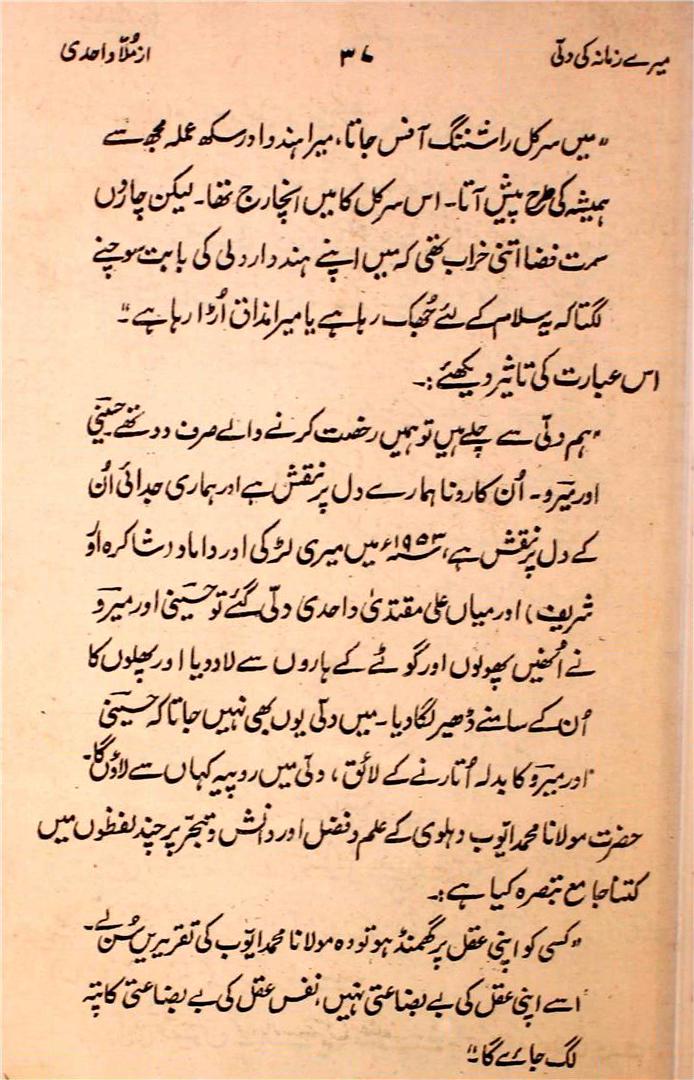 میرے زمانہ کی دلّی ۳۷ از مُلّا واحدی
"میں سرکل راشننگ آفس جاتا، میرا ہندو اور سکھ عملہ مجھ سے
ہمیشہ کی طرح پیش آتا۔ اس سرکل کا میں انچارج تھا۔ لیکن چاروں
سمت فضا اتنی خراب تھی کہ میں اپنے ہندو اردلی کی بابت سوچنے
لگتا کہ یہ سلام کے لئے جُھک رہا ہے یا میرا مذاق اُڑا رہا ہے۔"
اس عبارت کی تاثیر دیکھئے:۔
"ہم دلّی سے چلے ہیں تو ہمیں رخصت کرنے والے صرف دو تھے۔ حسینی
اور میرو۔ اُن کا رونا ہمارے دل پر نقش ہے اور ہماری جدائی اُن
کے دل پر نقش ہے، ۱۹۵۳ء میں میری لڑکی اور داماد (شاکرہ اور
شریف) اور میاں علی مقتدیٰ واحدی دلّی گئے تو حسینی اور میرو
نے اُنھیں پھولوں اور گوٹے کے ہاروں سے لاد دیا اور پھلوں کا
اُن کے سامنے ڈھیر لگا دیا۔ میں دلّی یوں بھی نہیں جاتا کہ حسینی
اور میرو کا بدلہ اُتارنے کے لائق، دلّی میں روپیہ کہاں سے لاؤں گا۔"
حضرت مولانا محمد ایّوب دہلوی کے علم و فضل اور دانش و تبحّر پر چند لفظوں میں
کتنا جامع تبصرہ کیا ہے:۔
"کسی کو اپنی عقل پر گھمنڈ ہو تو وہ مولانا محمد ایّوب کی تقریریں سُن لے۔
اسے اپنی عقل کی بے بضاعتی نہیں، نفس عقل کی بے بضاعتی کا پتہ
لگ جائے گا۔"